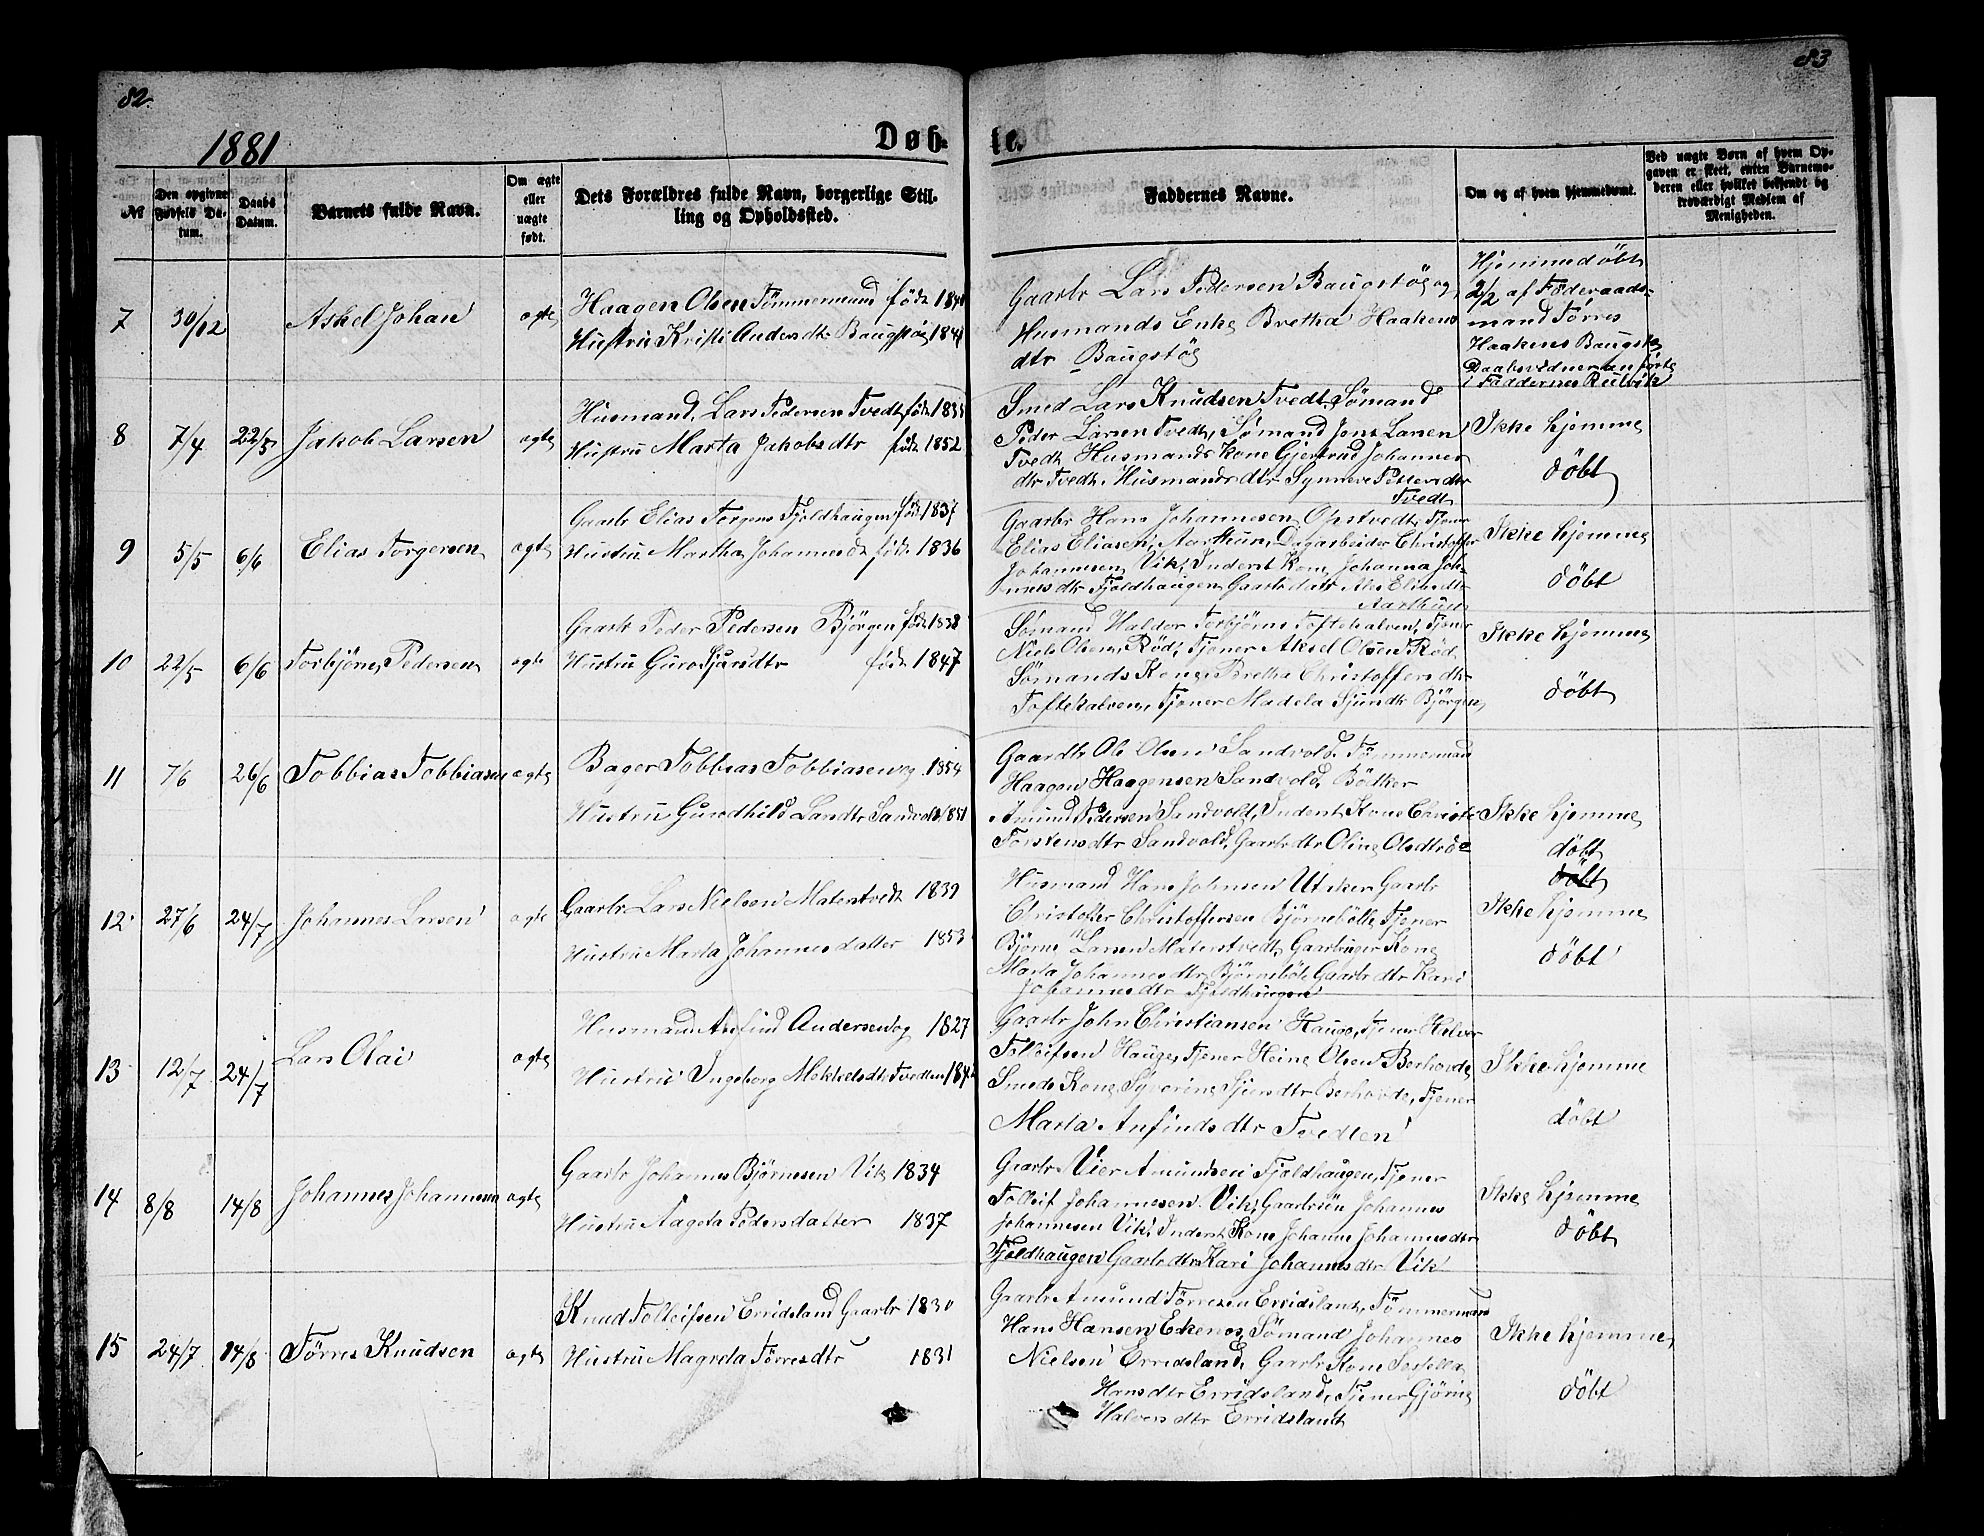 82
83
1881
Døbte.
№
Den opgivne Fødsels Datum.
Daabs Datum.
Barnets fulde Navn.
Om ægte eller uægte født.
Dets Forældres fulde Navn, borgerlige Stilling og Opholdssted.
Faddernes Navne.
Om og af hvem hjemmedøbt.
Ved uægte Børn af hvem Opgaven er skeet, enten Barnemoderen eller hvilket bekjendt og troværdigt Medlem af Menigheden.
7 30/12 Askel Johan ægte
Haagen Olsen Tömmermand föd
Hustru Kristi Andersdtr Baugstøg
Gaarbr Lars Pedersen Baugstøg og
Husmands Enke Bretha Haakens
dtr Baugstøg
Hjemmedöbt
2/2 af Föderaads-
mand Törres
Haakens Baugstøg
Daabsvidner anförte
i Faddernes Rubrik
8 7/4 22/5 Jakob Larsen ægte
Husmand Lars Pedersen Tvedt föd
Hustru Marta Jakobsdtr föd 1852
Smed Lars Knudsen Tvedt, Sømand
Peder Larsen Tvedt, Sømand Jens Larsen
Tvedt, Husmands Kone Gjertrud Johannes
dtr Tvedt, Husmands dtr Synneve Pettersdtr
Tvedt
Ikke hjemme
döbt
9 5/5 6/6 Elias Torgersen ægte
Gaarbr Elias Torgens Fjoldhaugen föd 1837
Hustru Martha Johannesdtr föd 1836
Gaarbr Hans Johannesen Opstvedt, Tjener
Elias Eliasen Aarthun, Dagarbeider Christoffer
Johannesen Vik, Inderst Kone Johanna Joh-
nnesdtr Fjoldhaugen, Gaarbr datr Eliasdtr
Aarthun
Ikke hjemme
döbt
10 22/5 6/6 Torbjörn Pedersen ægte
Gaarbr Peder Pedersen Björgen föd 1838
Hustru Guro Sjursdtr föd 1847
Sømand Haldor Torbjörns Toftekalven, Tjener
Niels Olsen Röd, Tjener Aksel Olsen Röd
Sømands Kone Bretha Christoffersdtr
Toftekalven, Tjener Madela Sjursdtr Björgen
Ikke hjemme
döbt
11 7/6 26/6 Tobbias Tobbiasen ægte
Bager Tobbias Tobbiasen og 1854
Hustru Gundhild Larsdtr Sandvold 1851
Gaardbr Ole Olsen Sandvold, Tömmermand
Haagen Haagensen Sandvold, Bödker
Amund Pedersen Sandvold, Inderst Kone Christi
Torstensdtr Sandvold, Gaarbrdtr Oline Olsdtr
Ikke hjemme
döbt
döbt
12 27/6 24/7 Johannes Larsen ægte
Gaarbr Lars Nielsen Materstvedt 1839
Hustru Marta Johannesdatter 1853
Husmand Hans Johnsen Utaker, Gaarbr
Christoffer Christoffersen Björneböle, Tjener
Björne Larsen Materstvedt, Gaarbruger Kone
Marta Johannesdtr Björneböle, Gaarbr dtr Kari
Johannesdtr Fjeldhaugen
Ikke hjemme
döbt
13 12/7 24/7 Lars Olai ægte
Husmand Anfind Andersen og 1827
Hustru Ingeborg Mekkelsdtr Tvedten
Gaarbr John Christiansen Hauge, Tjener Halvor
Tolleifsen Hauge, Tjener Heine Olsen Berhovde
Smeds Kone Syverine Sjursdtr Berhovde, Tjener
Marta Anfindsdtr Tvedten
Ikke hjemme
döbt
14 8/8 14/8 Johannes Johannesen ægte
Gaarbr Johannes Björnesen Vik 1834
Hustru Aageta Pedersdatter 1837
Gaarbr Vier Amundsen Fjoldhaugen, Tjener
Tolleif Johannesen Vik, Gaarbrsön Johannes
Johannesen Vik, Inderst Kone Johanne Johannesdtr
Fjoldhaugen, Gaarbr dtr Kari Johannesdtr Vik
Ikke hjemme
döbt
15 24/7 14/8 Törres Knudsen ægte
Knud Tolleifsen Erridsland Gaarbr 1830
Hustru Magreta Törresdtr 1831
Gaarbr Amund Törresen Erridsland, Tömmermand
Hans Hansen Eekenes, Sömand Johannes
Nielsen Erridsland, Gaarbr Kone
Hansdtr Erridsland, Tjener Gjörine
Halversdtr Erridsland
Ikke hjemme
döbt